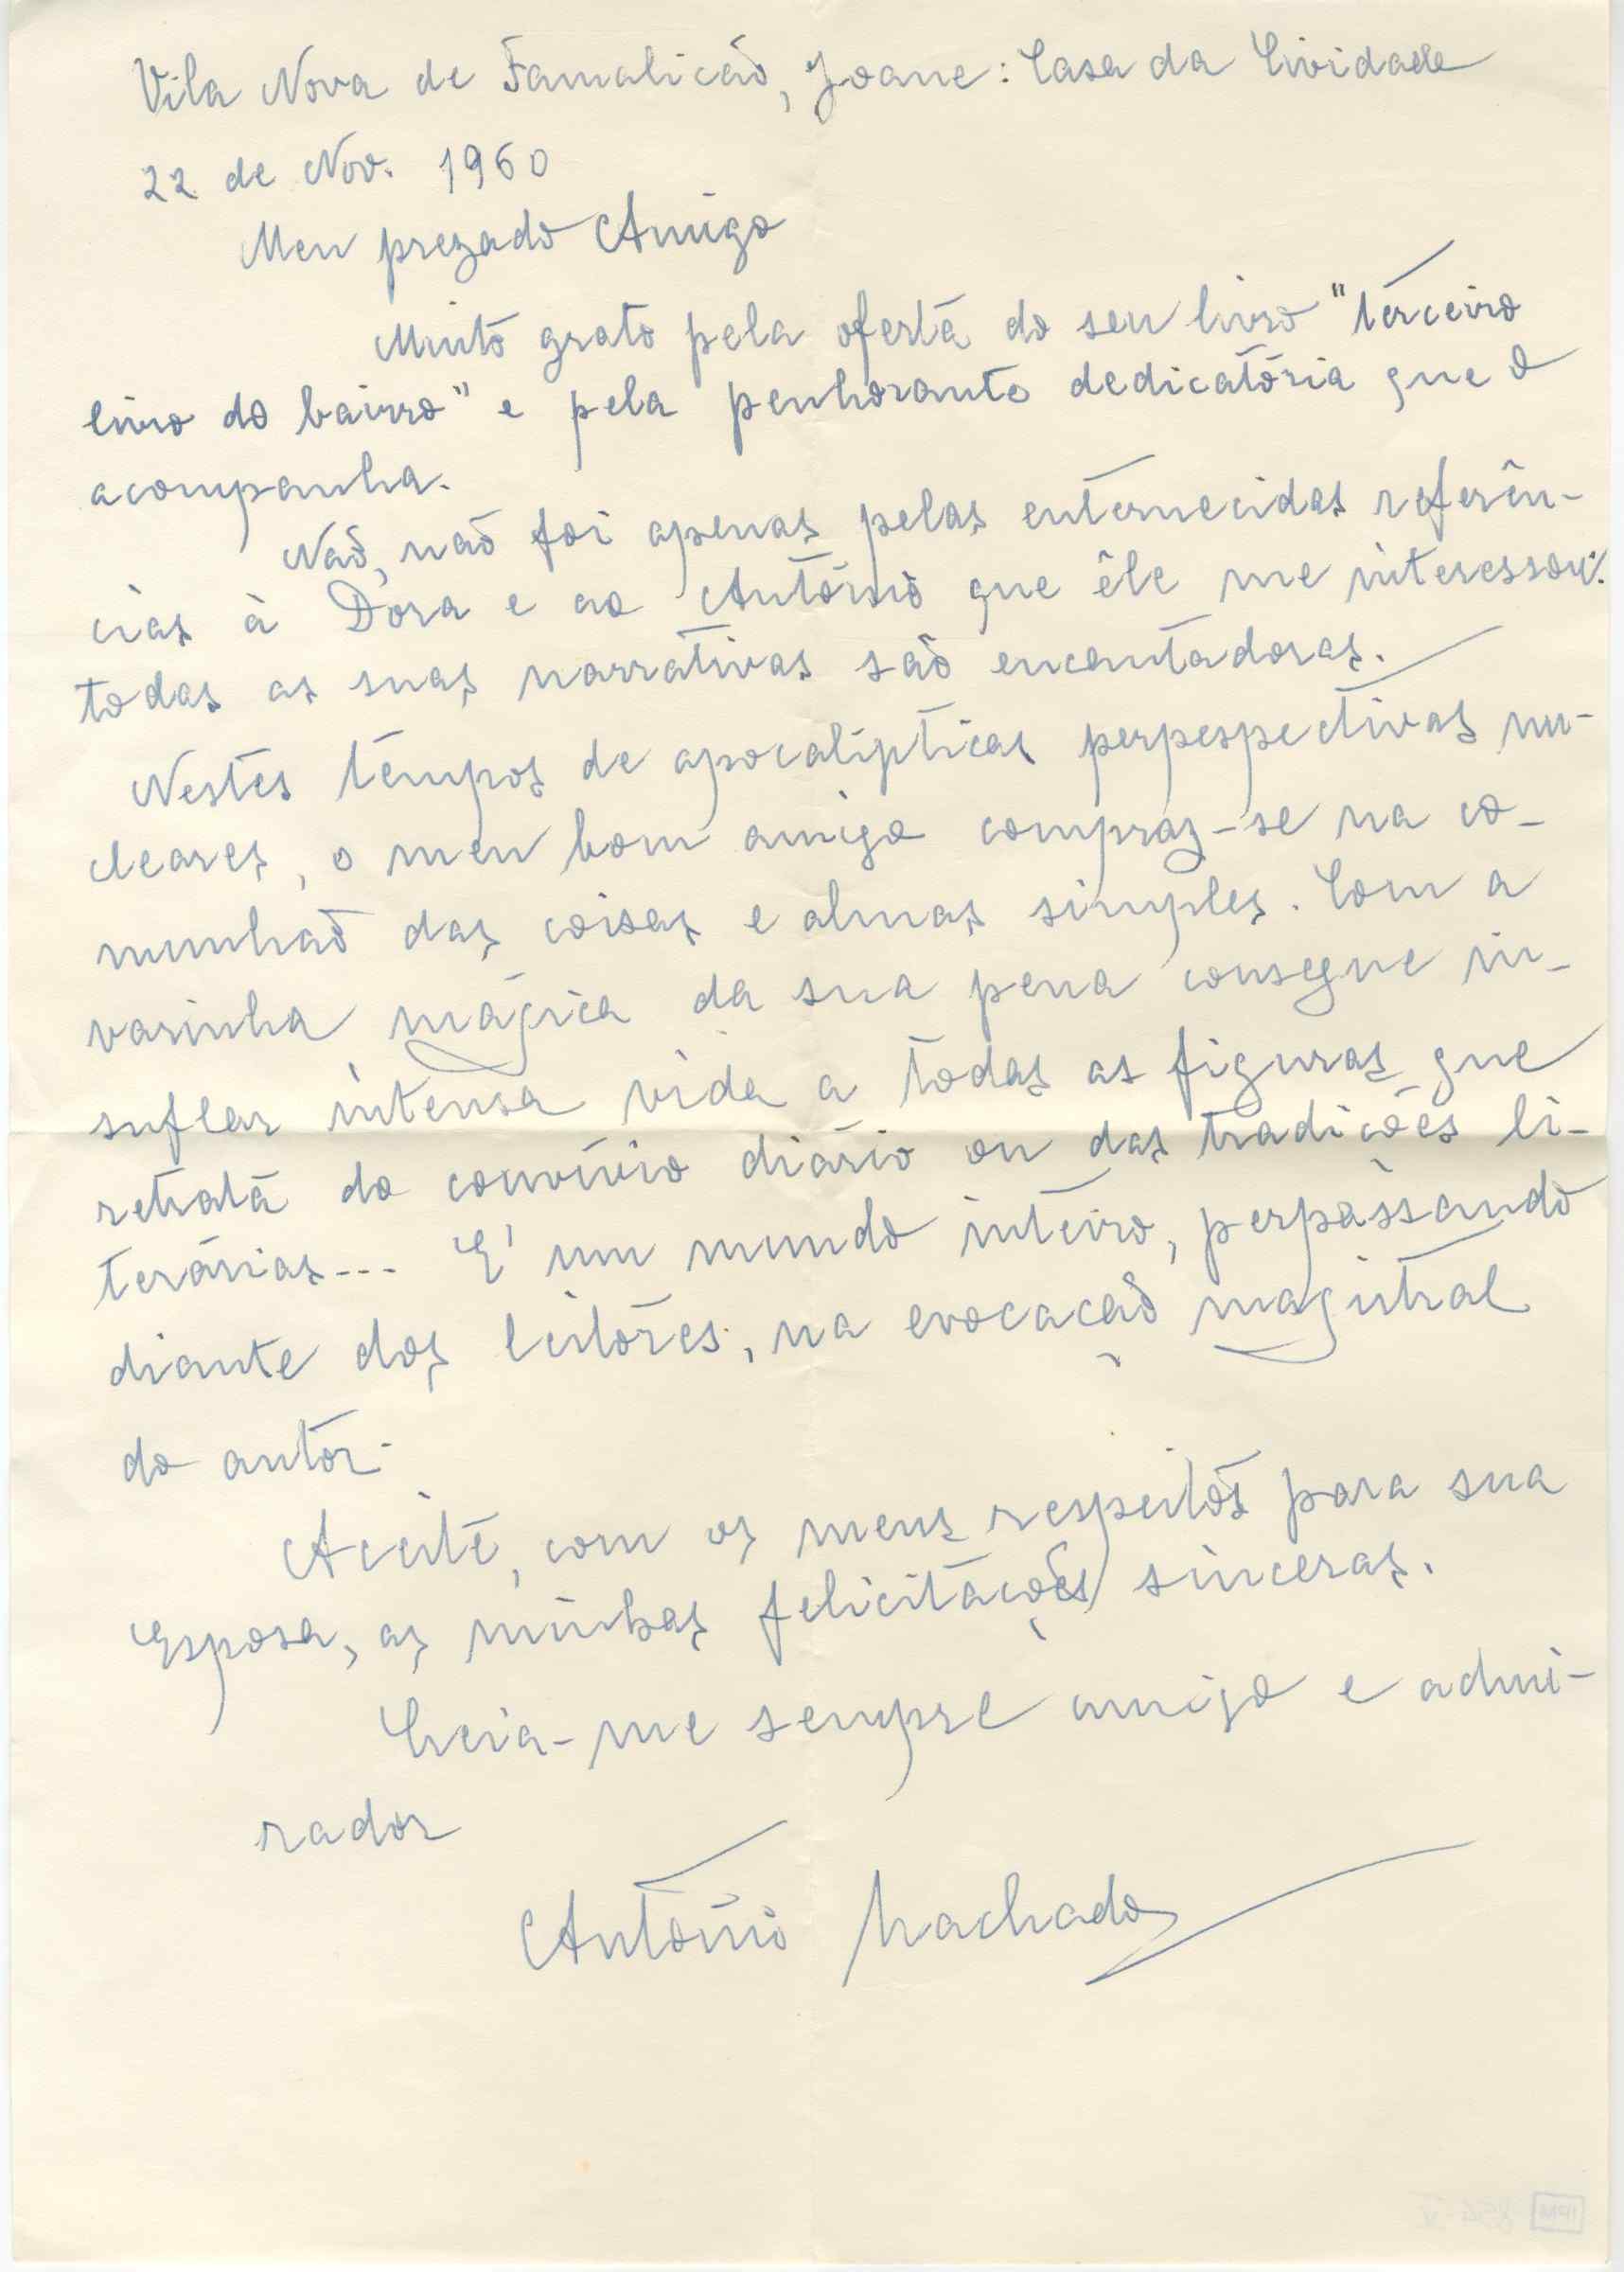 Vila Nova de Famalicão, Joane: Casa da Cividade
22 de Nov. 1960
Meu prezado Amigo
Muito grato pela oferta do seu livro "terceiro
livro do bairro" e pela penhorante dedicatória que o
acompanha.
Não, não foi apenas pelas enternecidas referên-
cias à Dora e ao António que êle me interessou:
todas as suas narrativas são encantadoras.
Nestes tempos de apocalípticas perpespectivas nu-
cleares, o meu bom amigo compraz-se na co-
munhão das coisas e almas simples. Com a
varinha mágica da sua pena consegue in-
suflar intensa vida a todas as figuras que
retrata do convívio diário ou das tradições li-
terárias... E' um mundo inteiro, perpassando
diante dos leitores, na evocação magistral
do autor.
Aceite, com os meus respeitos para sua
Esposa, as minhas felicitações sinceras.
Creia-me sempre amigo e admi-
rador
António Machado